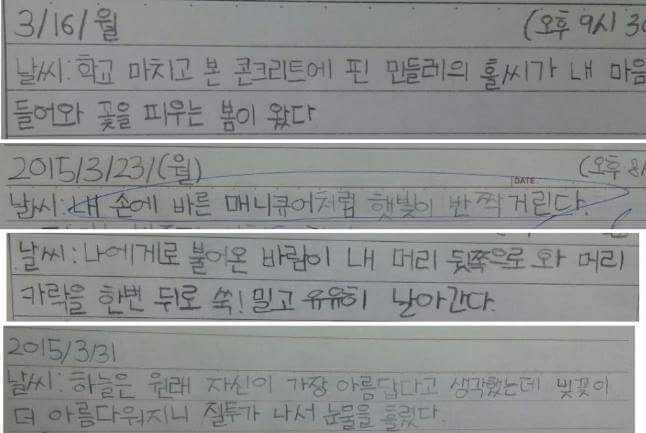 3/16/월 (오후 9시 30
날씨: 학교 마치고 본 콘크리트에 핀 민들레의 홀씨가 내 마음
들어와 꽃을 피우는 봄이 왔다
2015/3/23/(월) (오후 8
DATE
날씨: 내 손에 바른 매니큐어처럼 햇빛이 반짝거린다.
날씨: 나에게로 불어온 바람이 내 머리 뒷쪽으로 와 머리
카락을 한번 뒤로 쑥! 밀고 유유히 날아간다.
2015/3/31
날씨: 하늘은 원래 자신이 가장 아름답다고 생각했는데 벚꽃이
더 아름다워지니 질투가 나서 눈물을 흘렸다.